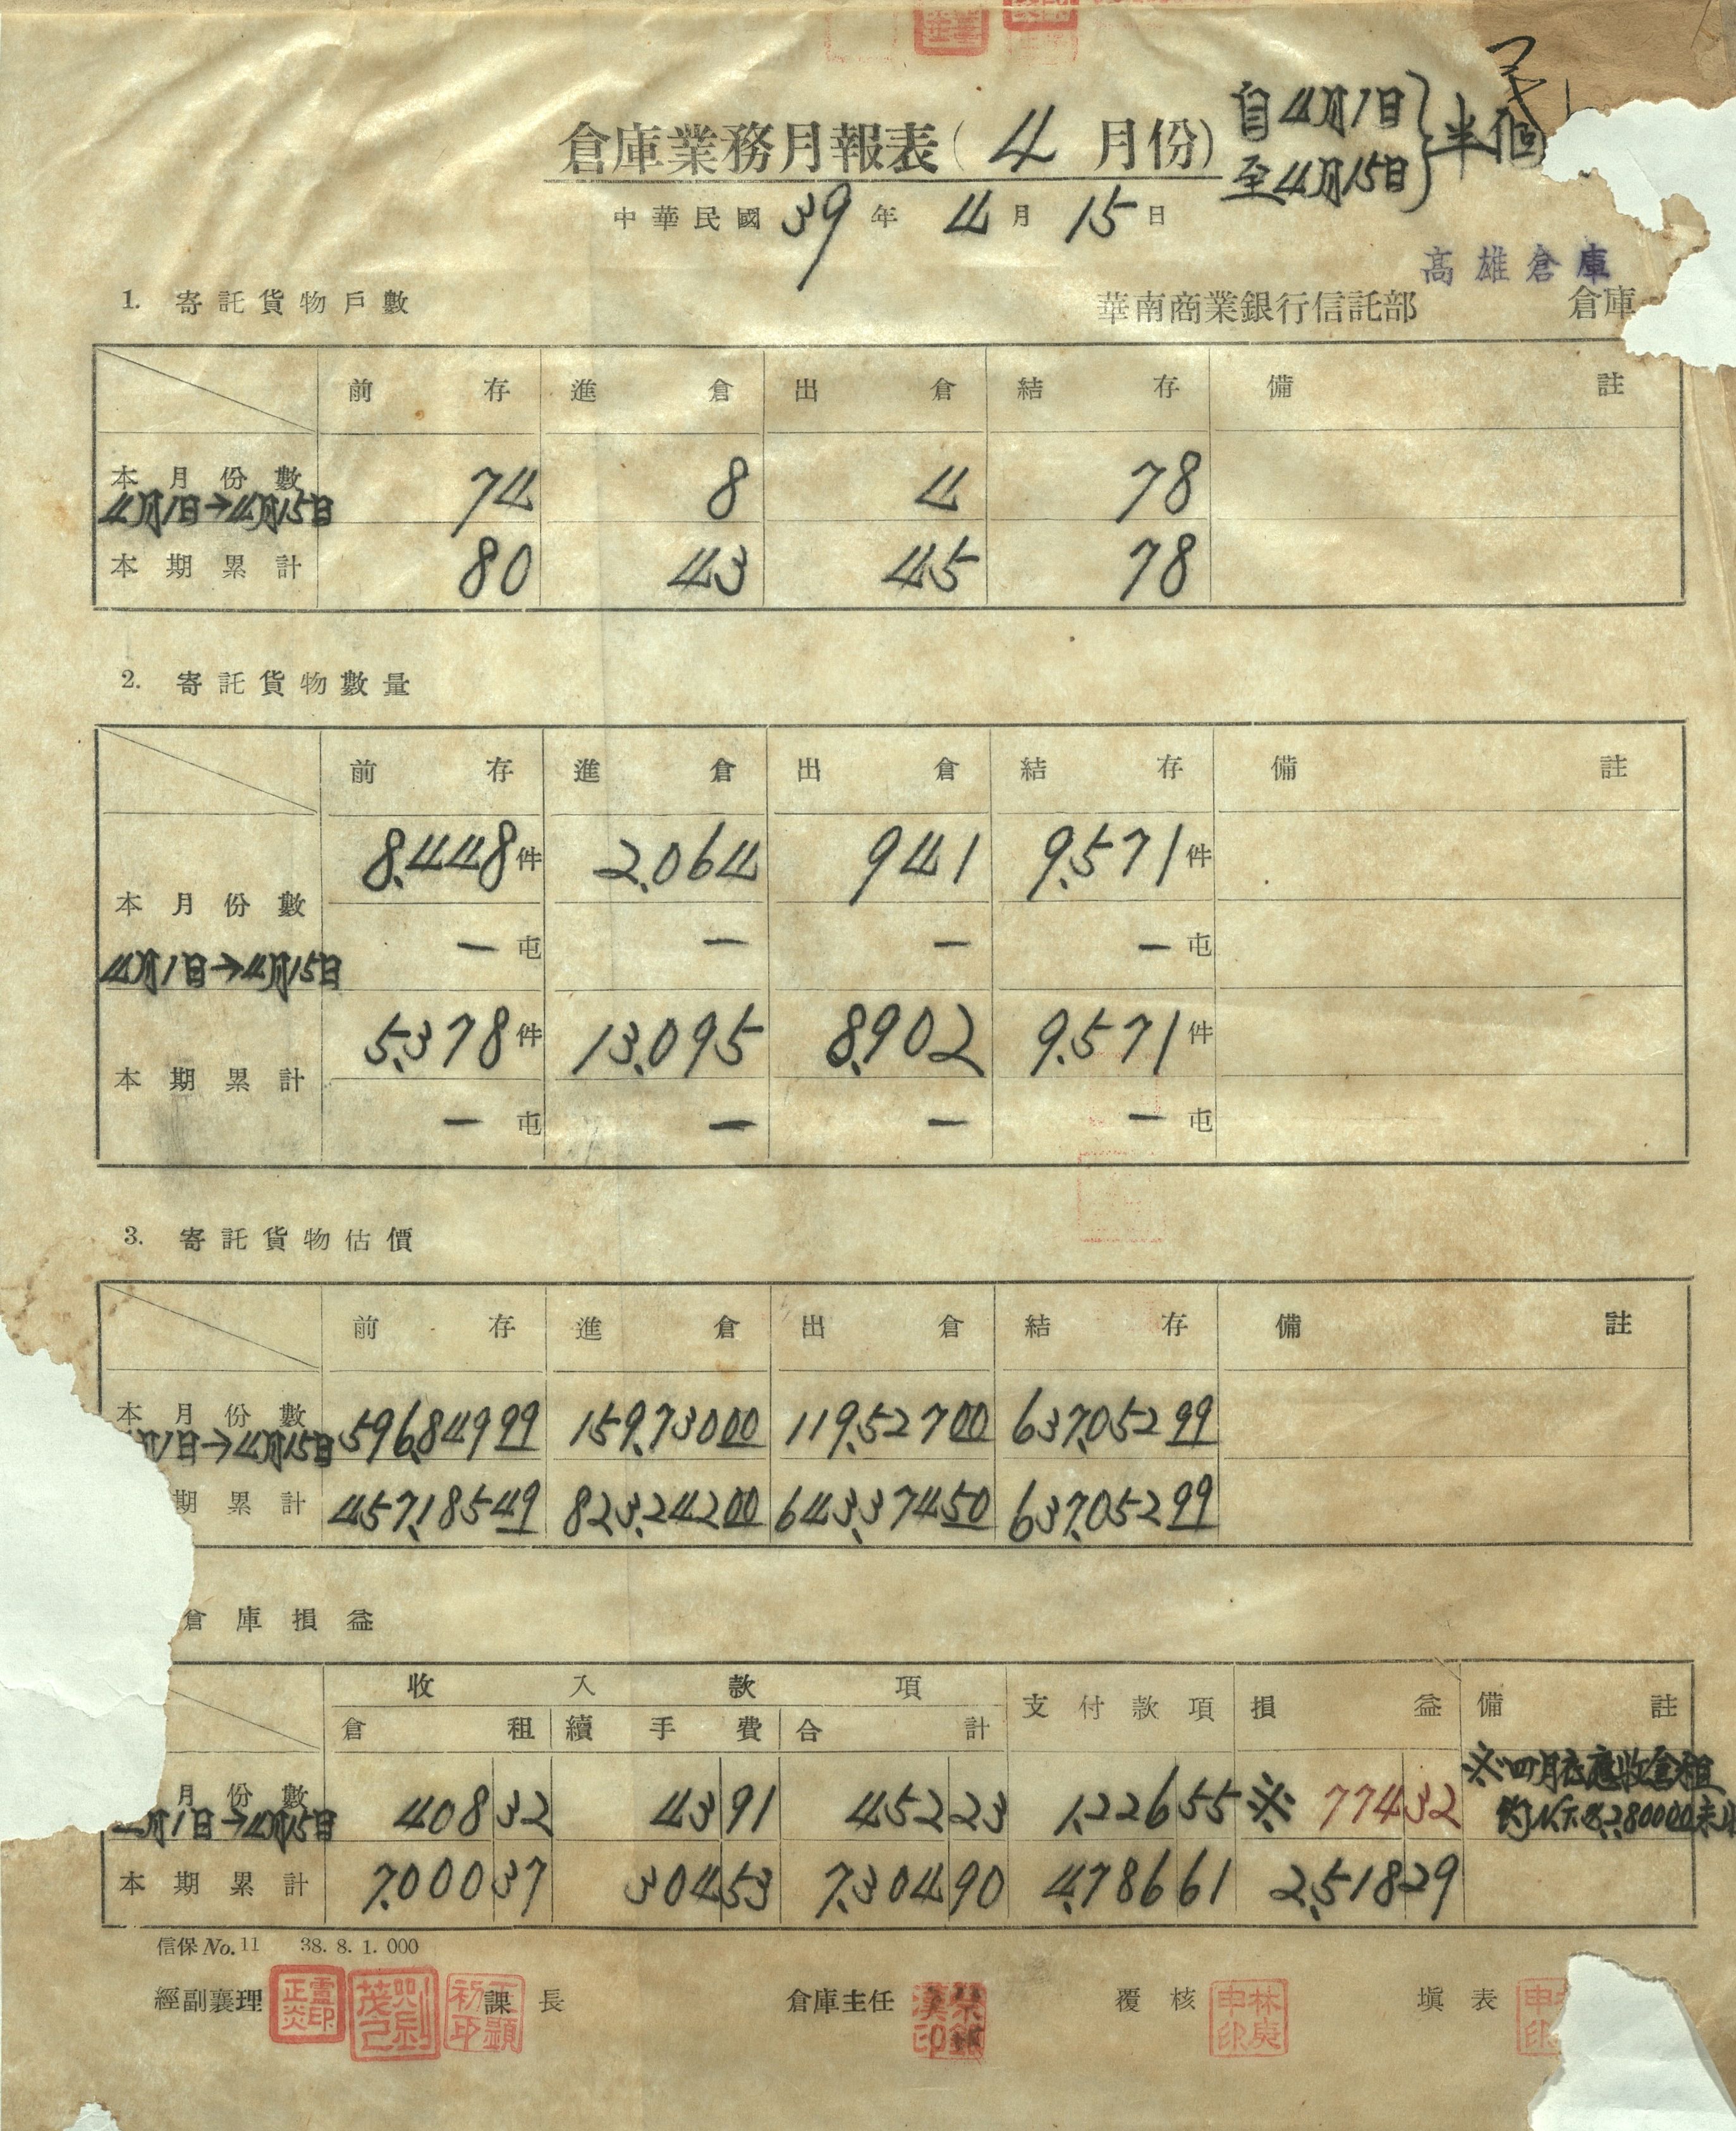 倉庫業務月報表（4月份）自4月1日至4月15日}半個
中華民國39年4月15日
高雄倉庫
1. 寄託貨物戶數
華南商業銀行信託部 倉庫
前存 進倉 出倉 結存 備註
本月份數 4月1日→4月15日 74 8 4 78
本期累計 80 43 45 78
2. 寄託貨物數量
前存 進倉 出倉 結存 備註
本月份數 4月1日→4月15日 8,448件 2,064 941 9,571件
— 屯 — — — 屯
本期累計 5,378件 13,095 8,902 9,571件
— 屯 — — — 屯
3. 寄託貨物估價
前存 進倉 出倉 結存 備註
本月份數 月1日→4月15日 596,849 99 159,730 00 119,527 00 637,052 99
期累計 457,185 49 823,242 00 643,374 50 637,052 99
倉庫損益
收入款項 支付款項 損益 備註
倉租 續手費 合計
月份數 月1日→4月15日 408 32 43 91 452 23 1,226 55 ※ 774 32 ※四月衣應收倉租
約NT.$2,800 00未收
本期累計 7,000 37 304 53 7,304 90 4,786 61 2,518 29
信保 No. 11 38. 8. 1. 000
經副襄理 課長 倉庫主任 覆核 填表
林庚申印